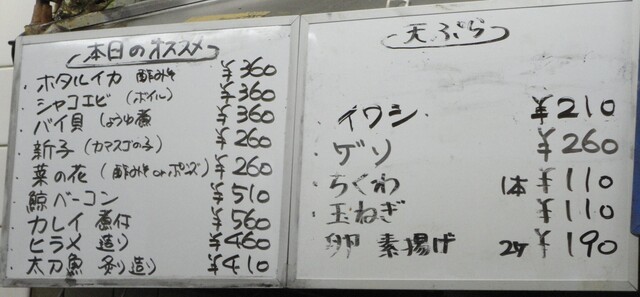 本日のオススメ
・ホタルイカ 酢みそ ¥360
・シャコエビ (ボイル) ¥360
・バイ貝 しょうゆ煮 ¥360
・新子 (カマスゴの子) ¥260
・菜の花 (酢みそorポンズ) ¥260
・鯨ベーコン ¥510
・カレイ 煮付 ¥560
・ヒラメ 造り ¥460
・太刀魚 炙り造り ¥410
天ぷら
・イワシ ¥210
・ゲソ ¥260
・ちくわ 1本 ¥110
・玉ねぎ ¥110
卵 素揚げ 2ケ ¥190